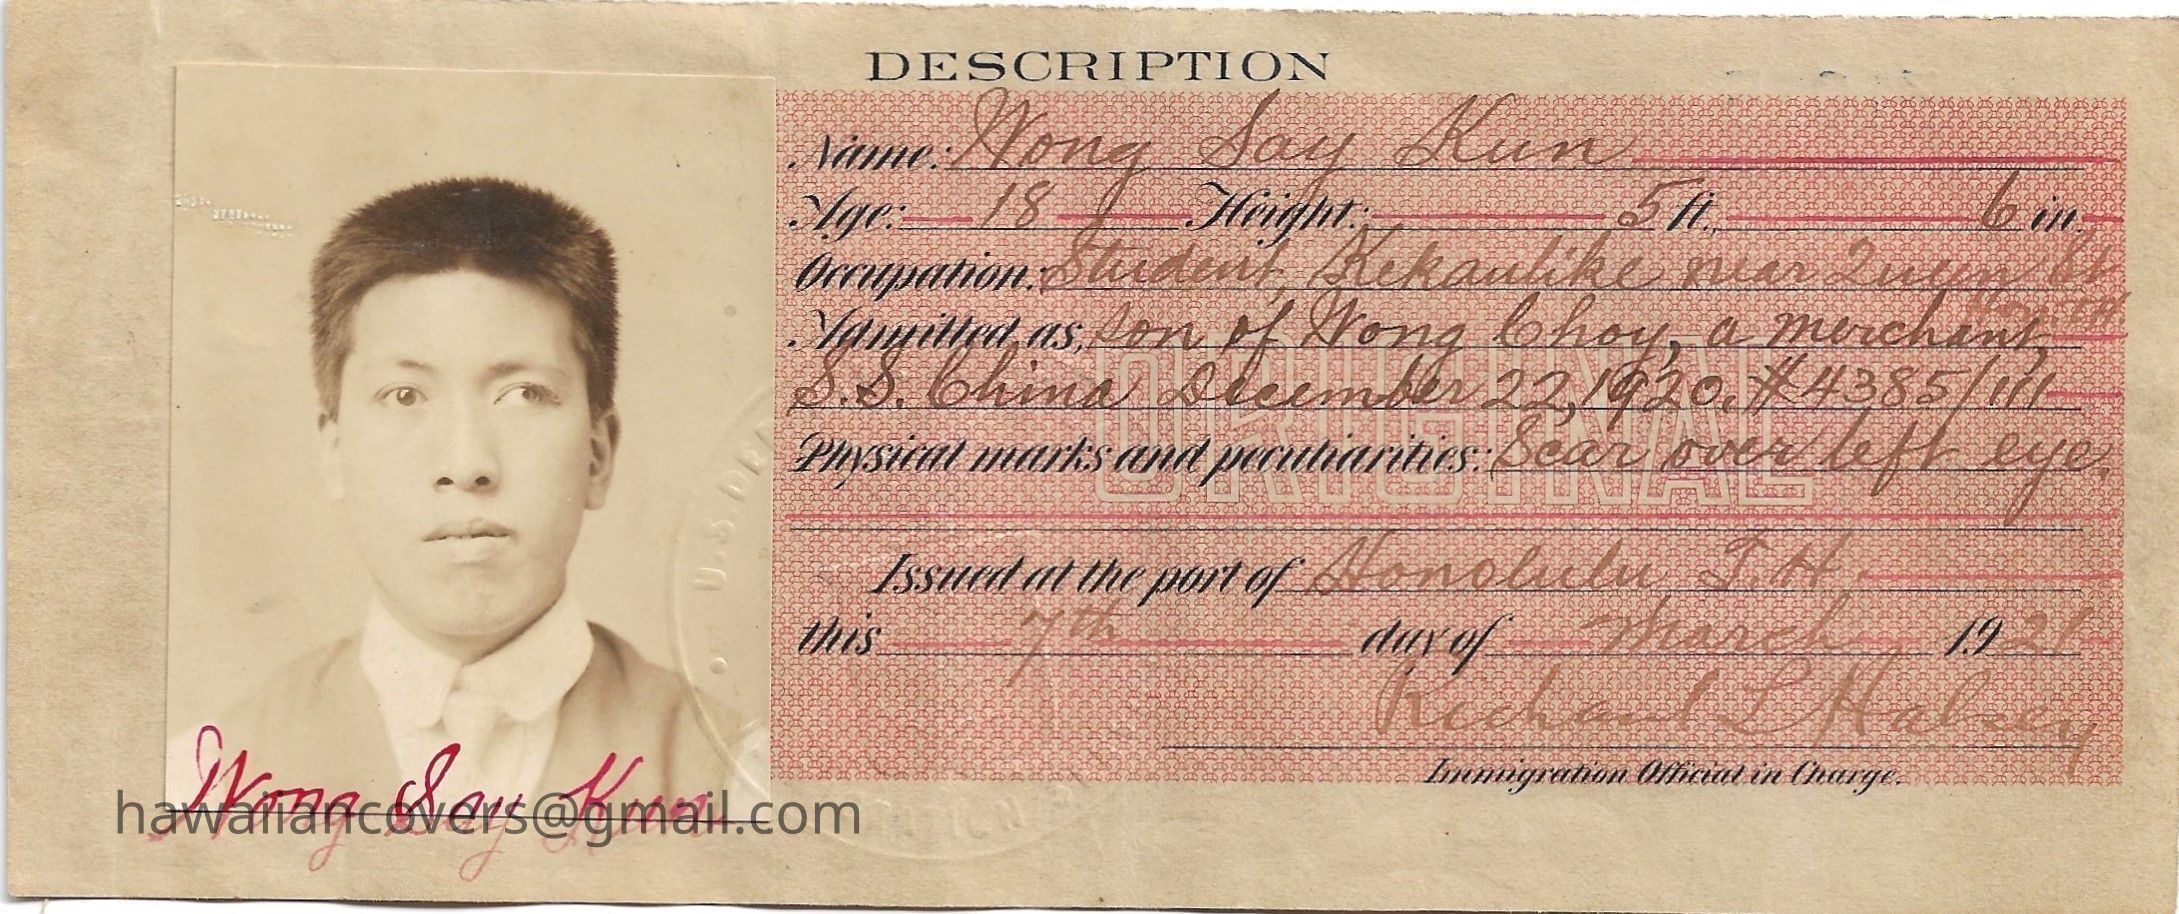 DESCRIPTION
Name: Wong Say Kun
Age: 18 Height: 5 ft. 6 in.
Occupation: Student, Kekaulike near Queen St
Admitted as, son of Wong Choy, a merchant,
S.S. China December 22, 1920. #4385/111
ORIGINAL
Physical marks and peculiarities: Scar over left eye.
Issued at the port of Honolulu T.H.
this 7th day of March 1921
Richard L Halsey
Immigration Official in Charge.
Wong Say Kun
hawaiiancovers@gmail.com